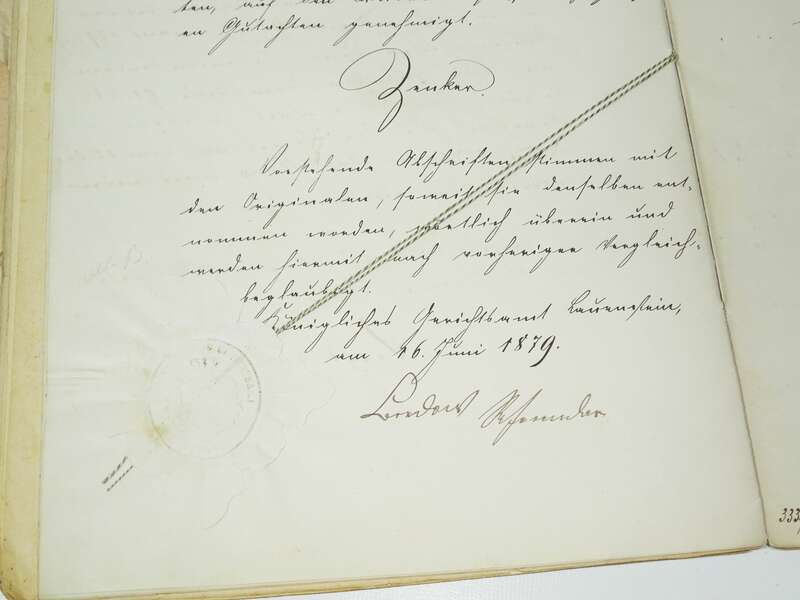 ten, auf den
en Gutachten genehmigt.
Zenker.
Vorstehende Abschriften stimmen mit
den Originalen, soweit sie denselben ent-
nommen worden, wörtlich überein und
werden hiermit nach vorheriger Vergleich-
beglaubigt.
Königliches Gerichtsamt Lauenstein,
am 16. Juni 1879.
Bredow Referendar
333